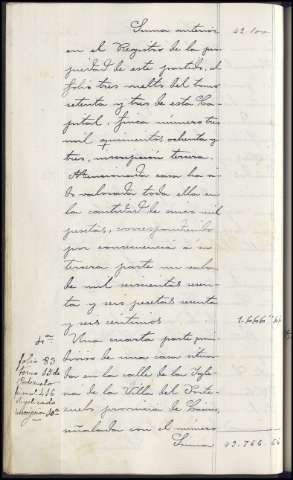 Suma anterior 42.100
en el Registro de la pro
piedad de este partido, al
folio tres vuelto del tomo
setenta y tres de esta Ca
pital, finca número tres
mil quinientos ochenta y
tres, inscripción tercera.
Mencionada casa ha si
do valorada toda ella en
la cantidad de cinco mil
pesetas, correspondiendo
por consecuencia a su
tercera parte un valor
de mil seiscientas sesen
ta y seis pesetas sesenta
y seis céntimos 1.666 66
4ª Una cuarta parte proin
divisa de una casa situa
da en la calle de la
na de la Villa del Porte
zuelo provincia de Cáceres,
señalada con el número
Suma 43.766 66
folio 83
tomo 15 de
Portezuelo
inscripción 10ª